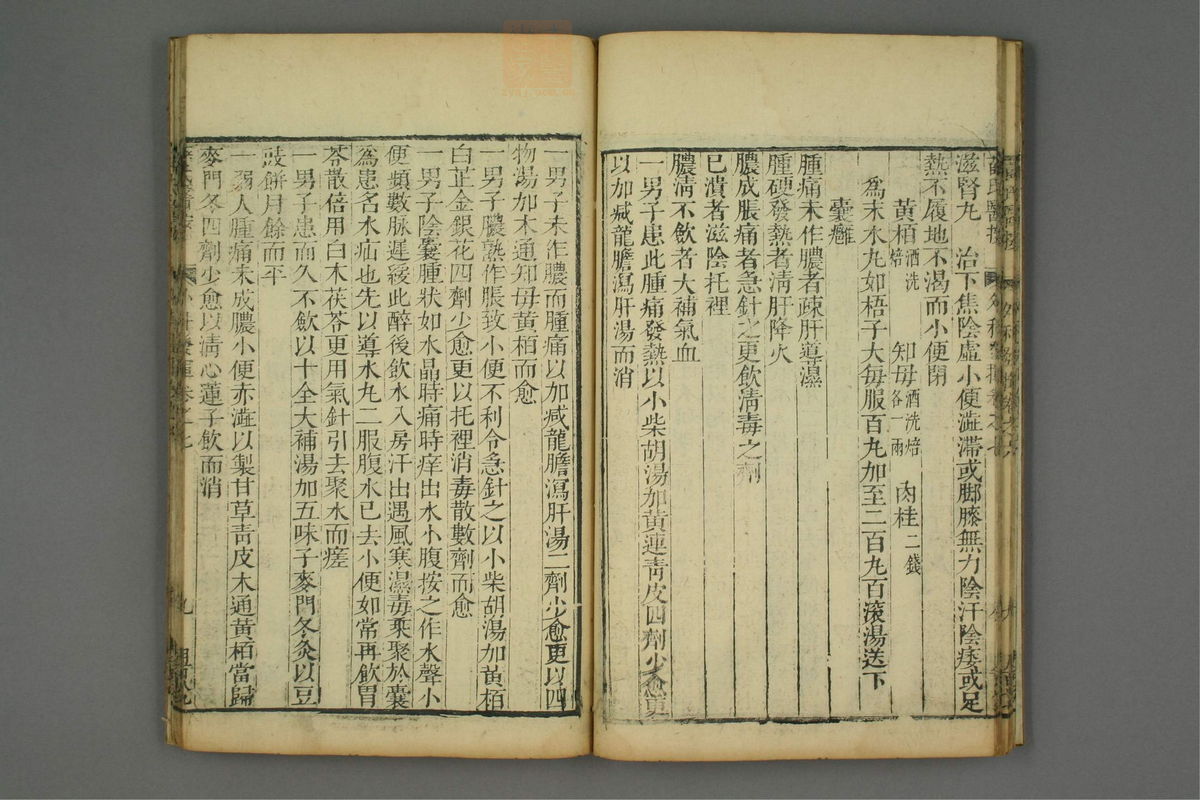 滋腎丸　治下焦陰虛小便澁滯或脚膝無力陰汗陰痿或足
熱不履地不渴而小便閉
黃栢酒洗焙　知母酒洗焙各二兩　肉桂二錢
爲末水丸如梧子大每服百丸加至二百丸百滾湯送下
囊癰
腫痛未作膿者疎肝導濕
腫硬發熱者淸肝降火
膿成脹痛者急針之更飲淸毒之劑
已潰者滋陰托裡
膿淸不飲者大補氣血
一男子患此腫痛發熱以小柴胡湯加黃連靑皮四劑少愈更
以加减龍膽瀉肝湯而消
一男子未作膿而腫痛以加减龍膽瀉肝湯二劑少愈更以四
物湯加木通知母黃栢而愈
一男子膿熟作脹致小便不利令急針之以小柴胡湯加黃栢
白芷金銀花四劑少愈更以托裡消毒散數劑而愈
一男子陰囊腫狀如水晶時痛時痒出水小腹按之作水聲小
便頻數脉遲緩此醉後飲水入房汗出遇風寒濕毒乘聚於囊
爲患名水疝也先以導水丸二服腹水已去小便如常再飲胃
苓散倍用白朮茯苓更用氣針引去聚水而瘥
一男子患而久不飲以十全大補湯加五味子麥門冬灸以豆
豉餅月餘而平
一弱人腫痛未成膿小便赤澁以製甘草靑皮木通黃栢當歸
麥門冬四劑少愈以淸心蓮子飲而消